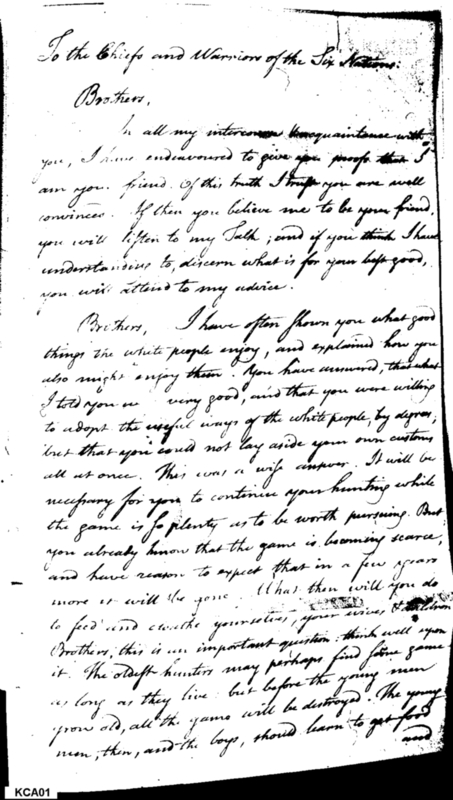 To the Chiefs and Warriors of the Six Nations:
Brothers,
In all my acquaintance with
you, I have endeavoured to give you proofs that I
am your friend. Of this truth I trust you are well
convinced. If then you believe me to be your friend,
you will listen to my Talk; and if you think I have
understanding to discern what is for your best good,
you will attend to my advice.
Brothers, I have often shown you what good
things the white people enjoy, and explained how you
also might enjoy them. You have answered, that what
I told you very good, and that you were willing
to adopt the useful ways of the white people, by degrees;
but that you could not lay aside your own customs
all at once. This was a wise answer. It will be
necessary for you to continue your hunting while
the game is so plenty as to be worth pursuing. But
you already know that the game is becoming scarce,
and have reason to expect that in a few years
more it will be gone. What then will you do
to feed and cloathe yourselves, your wives & children
Brothers, this is an important question: think well upon
it. The oldest hunters may perhaps find some game
as long as they live: but before the young men
grow old, all the game will be destroyed. The young
men, then, and the boys, should learn to get food
and
KCA01